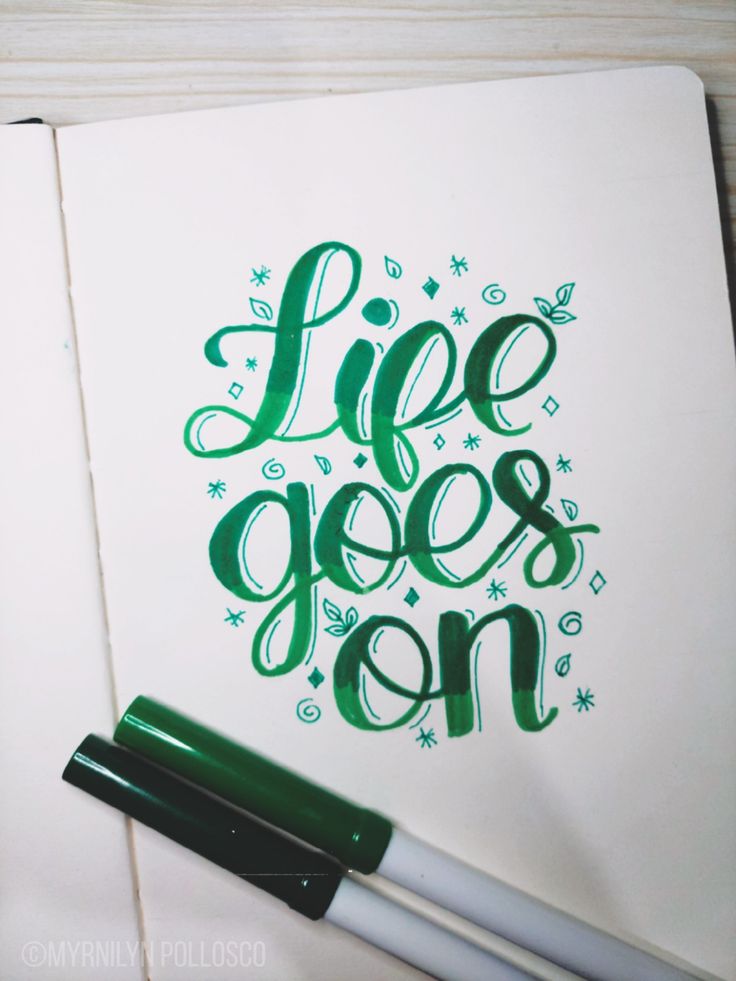 Life
goes
on
©MYRNILYN POLLOSCO